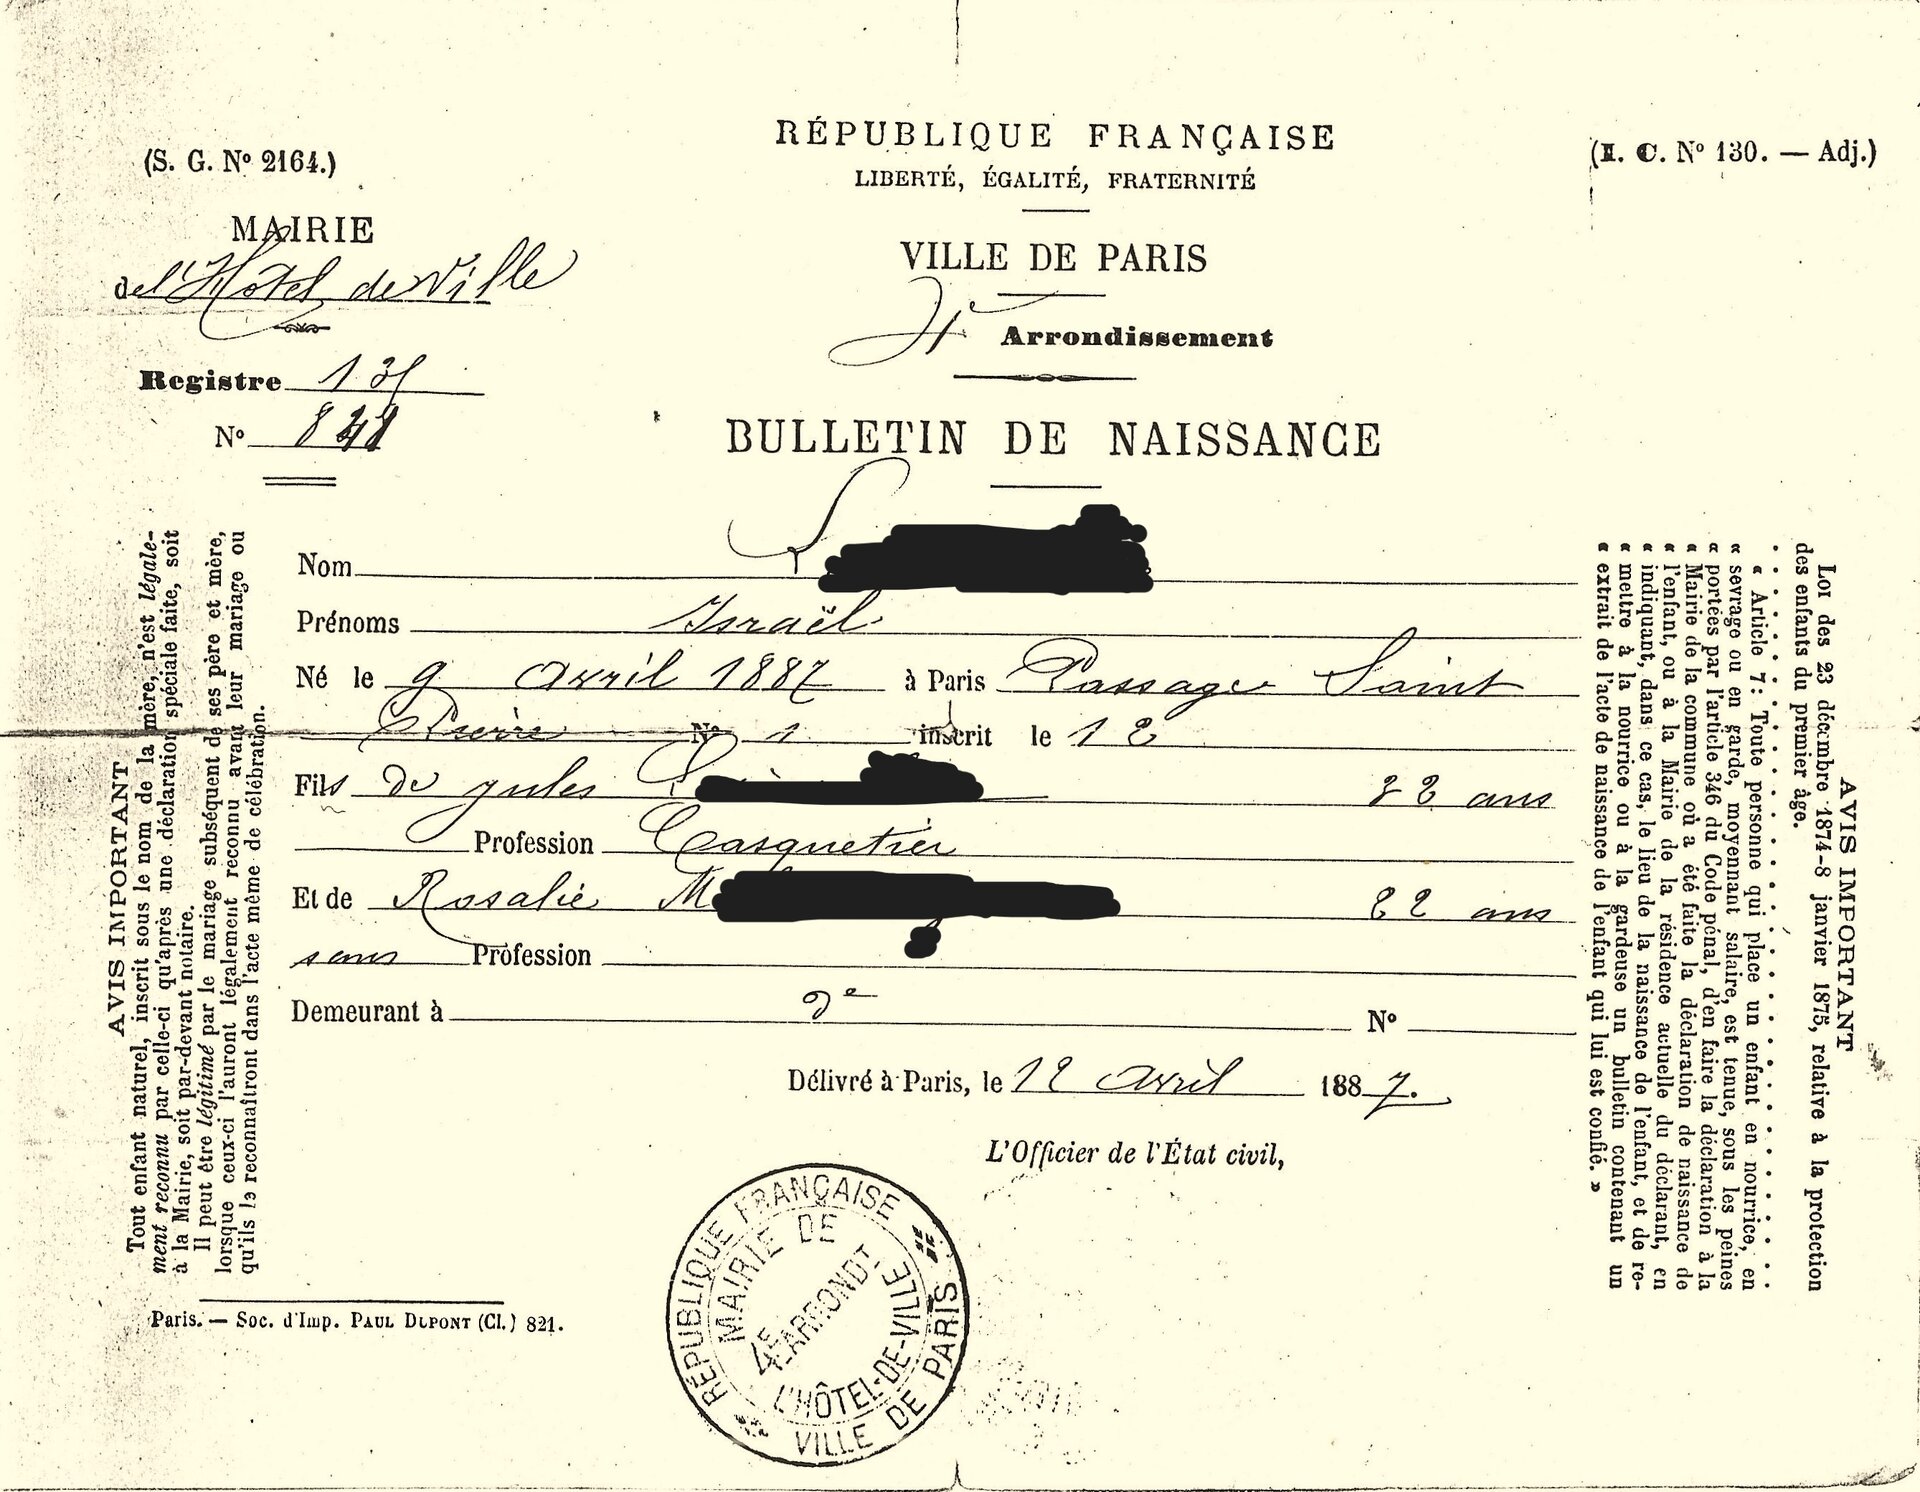 (S. G. Nº 2164.)
RÉPUBLIQUE FRANÇAISE
LIBERTÉ, ÉGALITÉ, FRATERNITÉ
(I. C. Nº 130. — Adj.)
MAIRIE
de l'Hôtel de Ville
VILLE DE PARIS
4e Arrondissement
Registre
Nº
BULLETIN DE NAISSANCE
Nom
Prénoms Israël
Né le 9 avril 1887 à Paris Passage Saint
Pierre Nº 1 inscrit le 12
Fils de Jules 22 ans
Profession Casquetier
Et de Rosalie M 22 ans
sans Profession
Demeurant à dº Nº
Délivré à Paris, le 12 avril 1887.
L'Officier de l'État civil,
RÉPUBLIQUE FRANÇAISE
VILLE DE PARIS
MAIRIE DE
L'HÔTEL-DE-VILLE
4E ARRONDT
AVIS IMPORTANT
Tout enfant naturel, inscrit sous le nom de la mère, n'est légale-
ment reconnu par celle-ci qu'après une déclaration spéciale faite, soit
à la Mairie, soit par-devant notaire.
Il peut être légitimé par le mariage subséquent de ses père et mère,
lorsque ceux-ci l'auront légalement reconnu avant leur mariage ou
qu'ils le reconnaîtront dans l'acte même de célébration.
Paris. — Soc. d'Imp. PAUL DUPONT (Cl.) 821.
AVIS IMPORTANT
Loi des 23 décembre 1874-8 janvier 1875, relative à la protection
des enfants du premier âge.
« Article 7 : Toute personne qui place un enfant en nourrice, en
« sevrage ou en garde, moyennant salaire, est tenue, sous les peines
« portées par l'article 346 du Code pénal, d'en faire la déclaration à la
« Mairie de la commune où a été faite la déclaration de naissance de
« l'enfant, ou à la Mairie de la résidence actuelle du déclarant, en
« indiquant, dans ce cas, le lieu de la naissance de l'enfant, et de re-
« mettre à la nourrice ou à la gardeuse un bulletin contenant un
« extrait de l'acte de naissance de l'enfant qui lui est confié. »